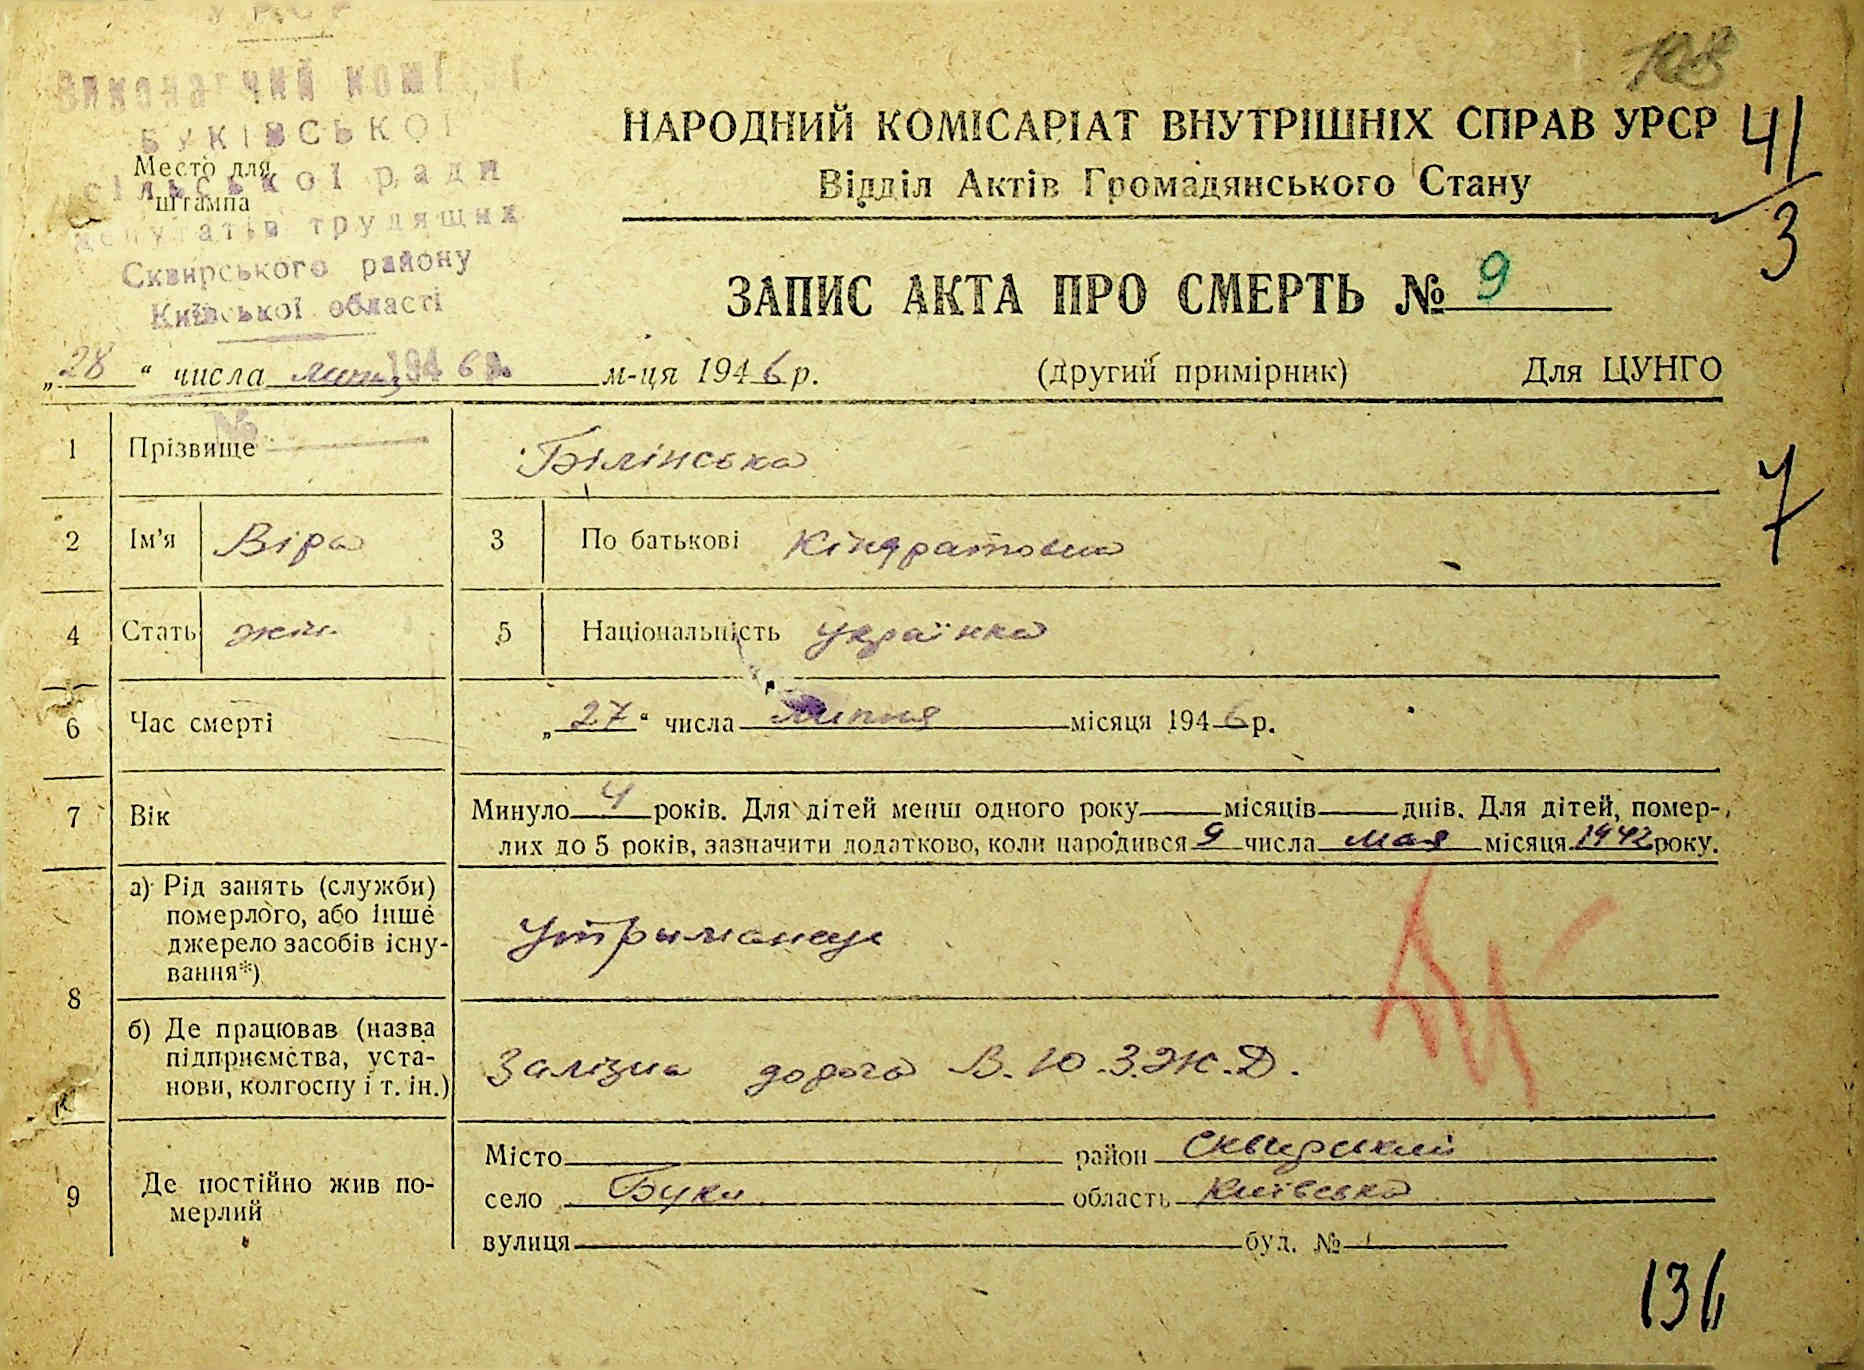 УРСР
108
Виконавчий комітет
БУКІВСЬКОЇ
Место для штампа
сільської ради
депутатів трудящих
Сквирського району
Київської області
1946 р.
№
НАРОДНИЙ КОМІСАРІАТ ВНУТРІШНІХ СПРАВ УРСР
41/3
Відділ Актів Громадянського Стану
ЗАПИС АКТА ПРО СМЕРТЬ № 9
„28“ числа липня м-ця 1946 р. (другий примірник) Для ЦУНГО
1 Прізвище Білінська
7
2 Ім'я Віра 3 По батькові Кіндратовна
4 Стать жін. 5 Національність українка
6 Час смерті „27“ числа липня місяця 1946 р.
7 Вік Минуло 4 років. Для дітей менш одного року місяців днів. Для дітей, помер-
лих до 5 років, зазначити додатково, коли народився 9 числа мая місяця 1942 року.
8 а) Рід занять (служби)
померлого, або інше
джерело засобів існу-
вання*)
Утриманец
б) Де працював (назва
підприємства, уста-
нови, колгоспу і т. ін.)
Залізна дорога В.Ю.З.Ж.Д.
9 Де постійно жив по-
мерлий
Місто район Сквирський
село Буки область Київська
вулиця буд. №
136